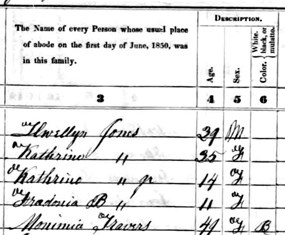 DESCRIPTION.
The Name of every Person whose usual place of abode on the first day of June, 1850, was in this family.
Age.
Sex.
White, black, or mulatto.
Color.
3 4 5 6
Llwellyn Jones 39 M
Kathrine " 35 F
Kathrine " jr 14 F
Fradonia B " 11 F
Monimia Travers 49 F B